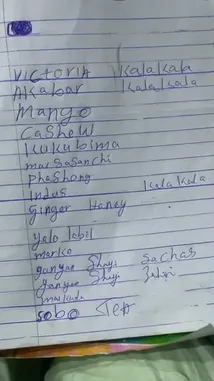 VICTORIA kalakala
Alkabar kalakala
Mango
Cashew
Kukubima
massasanchi
Phashong
Indus kalakala
Ginger Honey
yelo label
marko
ganyae Shayi Sachas
ganyae Shayi
sobo Tea